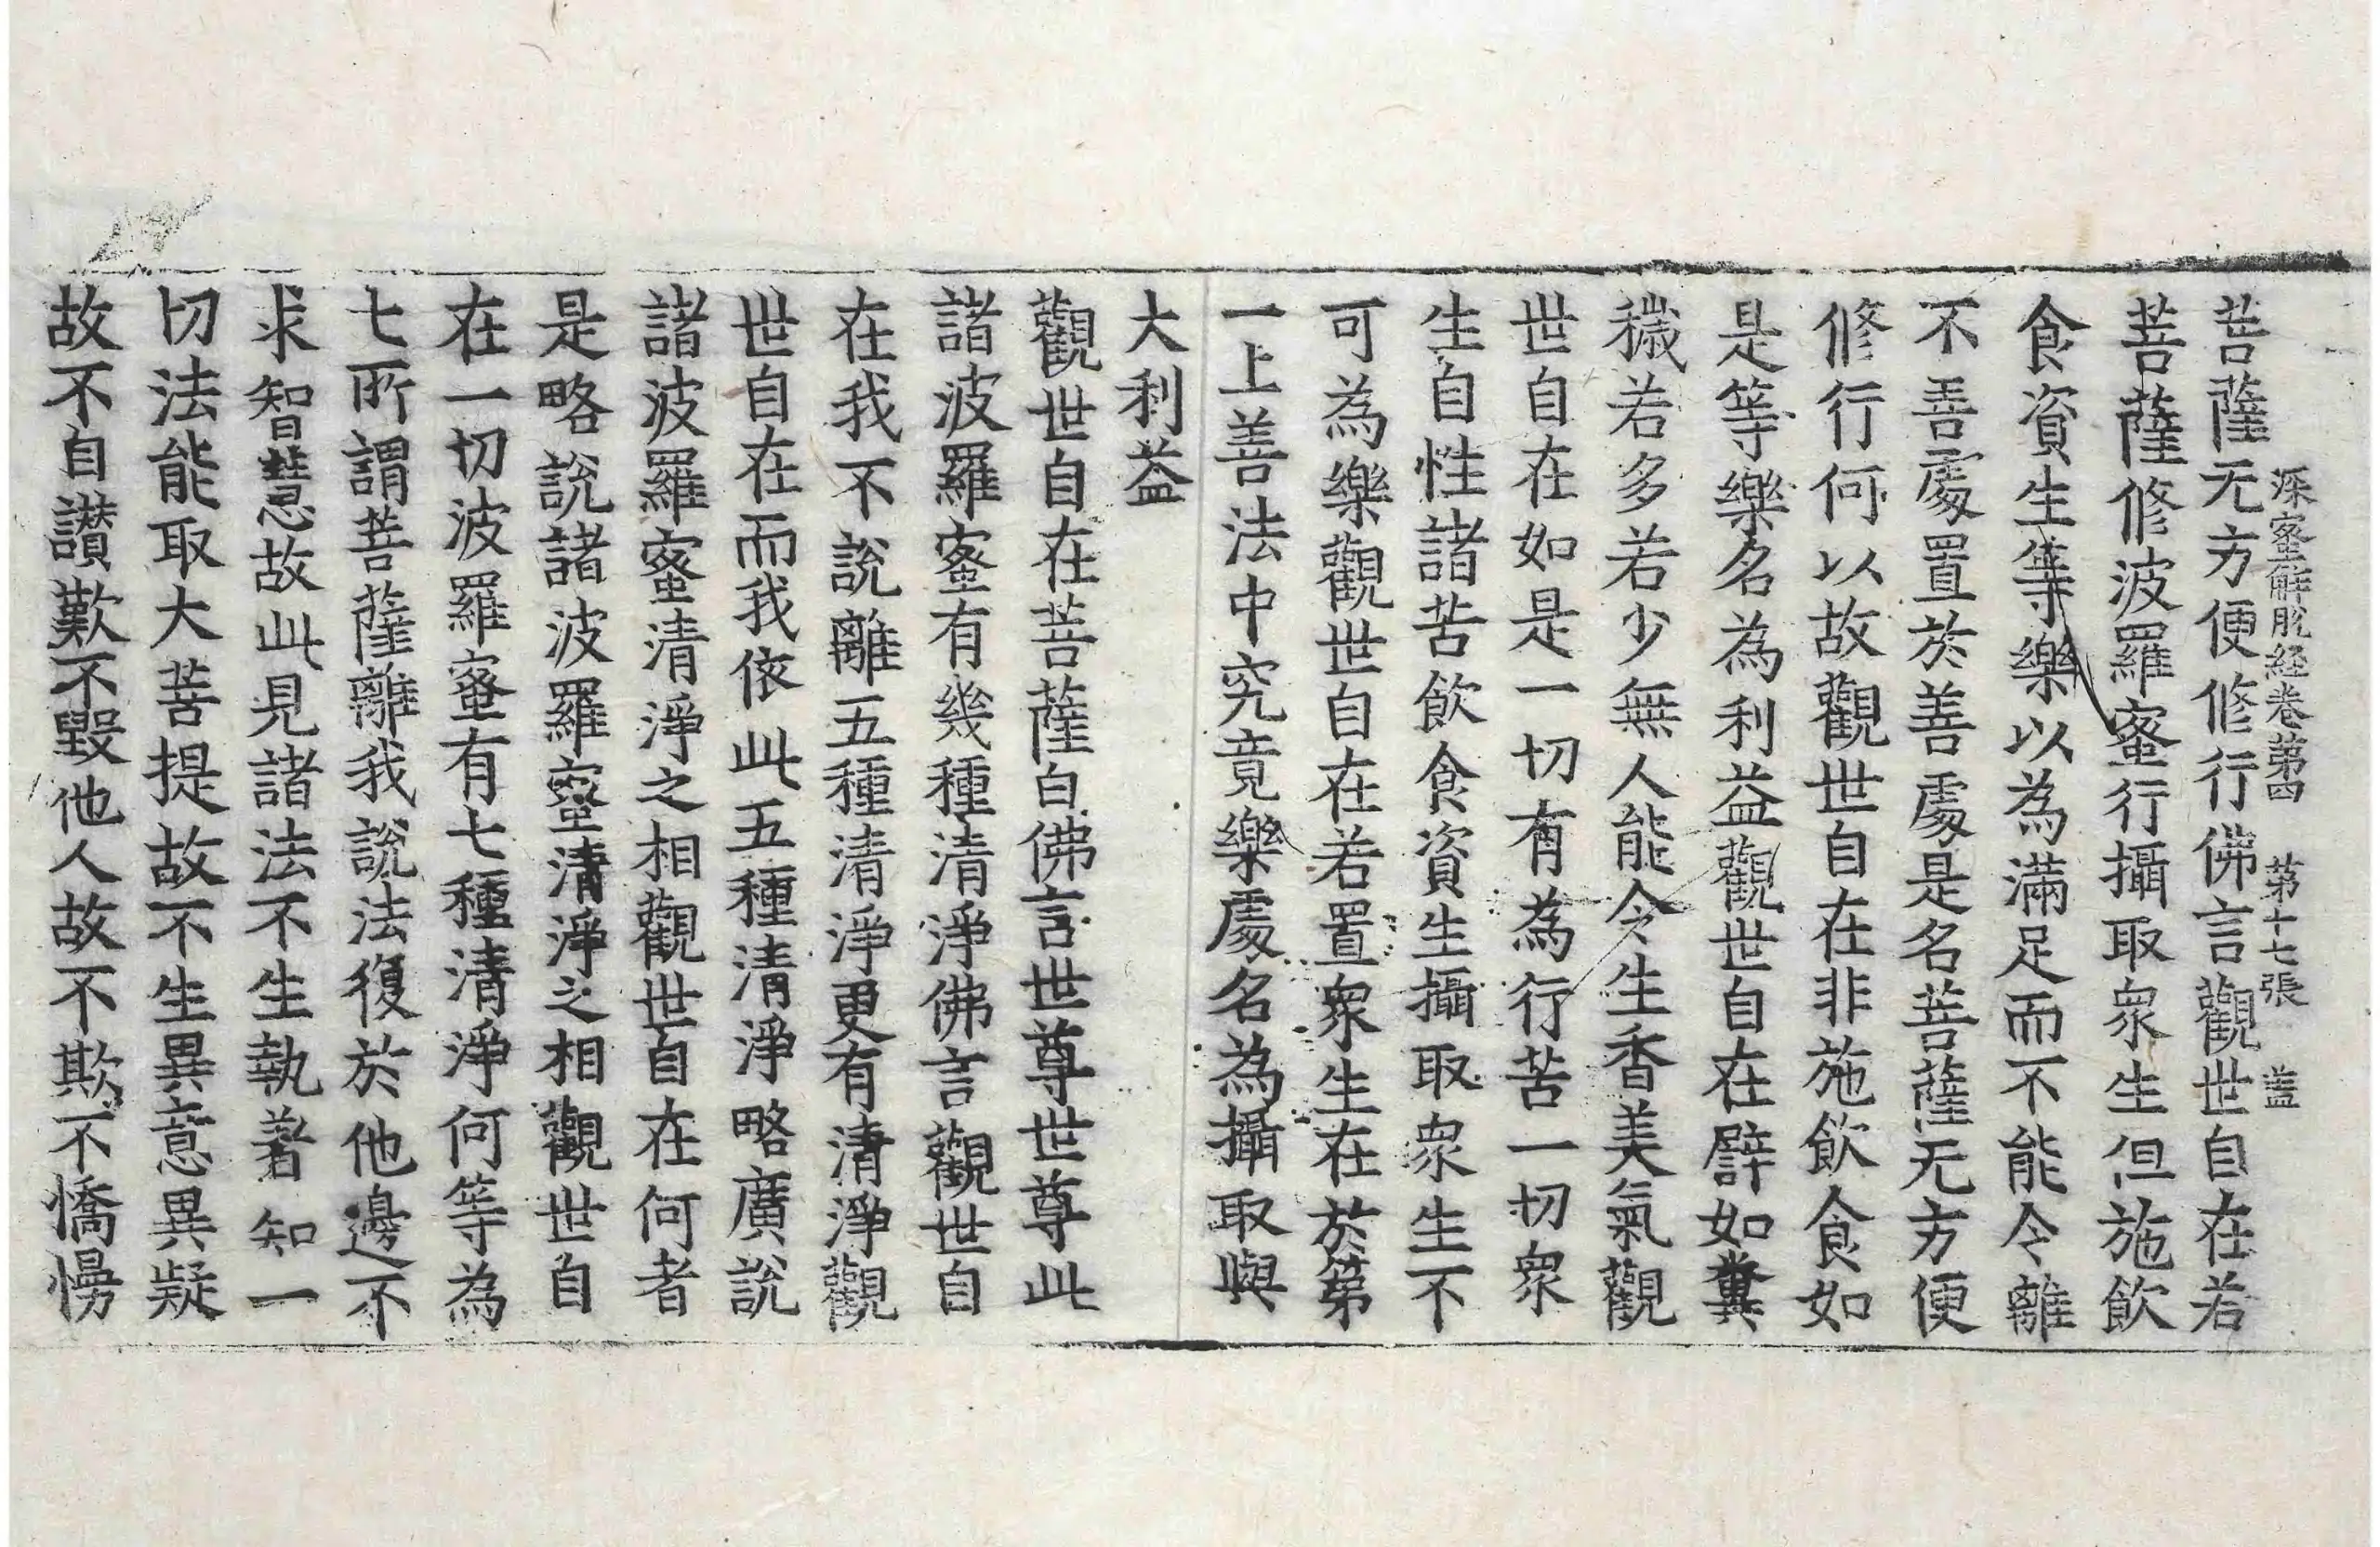 深蜜解脫経卷第四 第十七張 盖
菩薩无方便修行佛言觀世自在若
菩薩修波羅蜜行攝取衆生但施飲
食資生等樂以為滿足而不能令離
不善處置於善處是名菩薩无方便
修行何以故觀世自在非施飲食如
是等樂名為利益觀世自在譬如糞
穢若多若少無人能令生香美氣觀
世自在如是一切有為行苦一切衆
生自性諸苦飲食資生攝取衆生不
可為樂觀世自在若置衆生在於第
一上善法中究竟樂處名為攝取與
大利益
觀世自在菩薩白佛言世尊世尊此
諸波羅蜜有幾種清淨佛言觀世自
在我不說離五種清淨更有清淨觀
世自在而我依此五種清淨略廣說
諸波羅蜜清淨之相觀世自在何者
是略說諸波羅蜜清淨之相觀世自
在一切波羅蜜有七種清淨何等為
七所謂菩薩離我說法復於他邊不
求智慧故此見諸法不生執著知一
切法能取大菩提故不生異意異疑
故不自讃歎不毀他人故不欺不憍慢